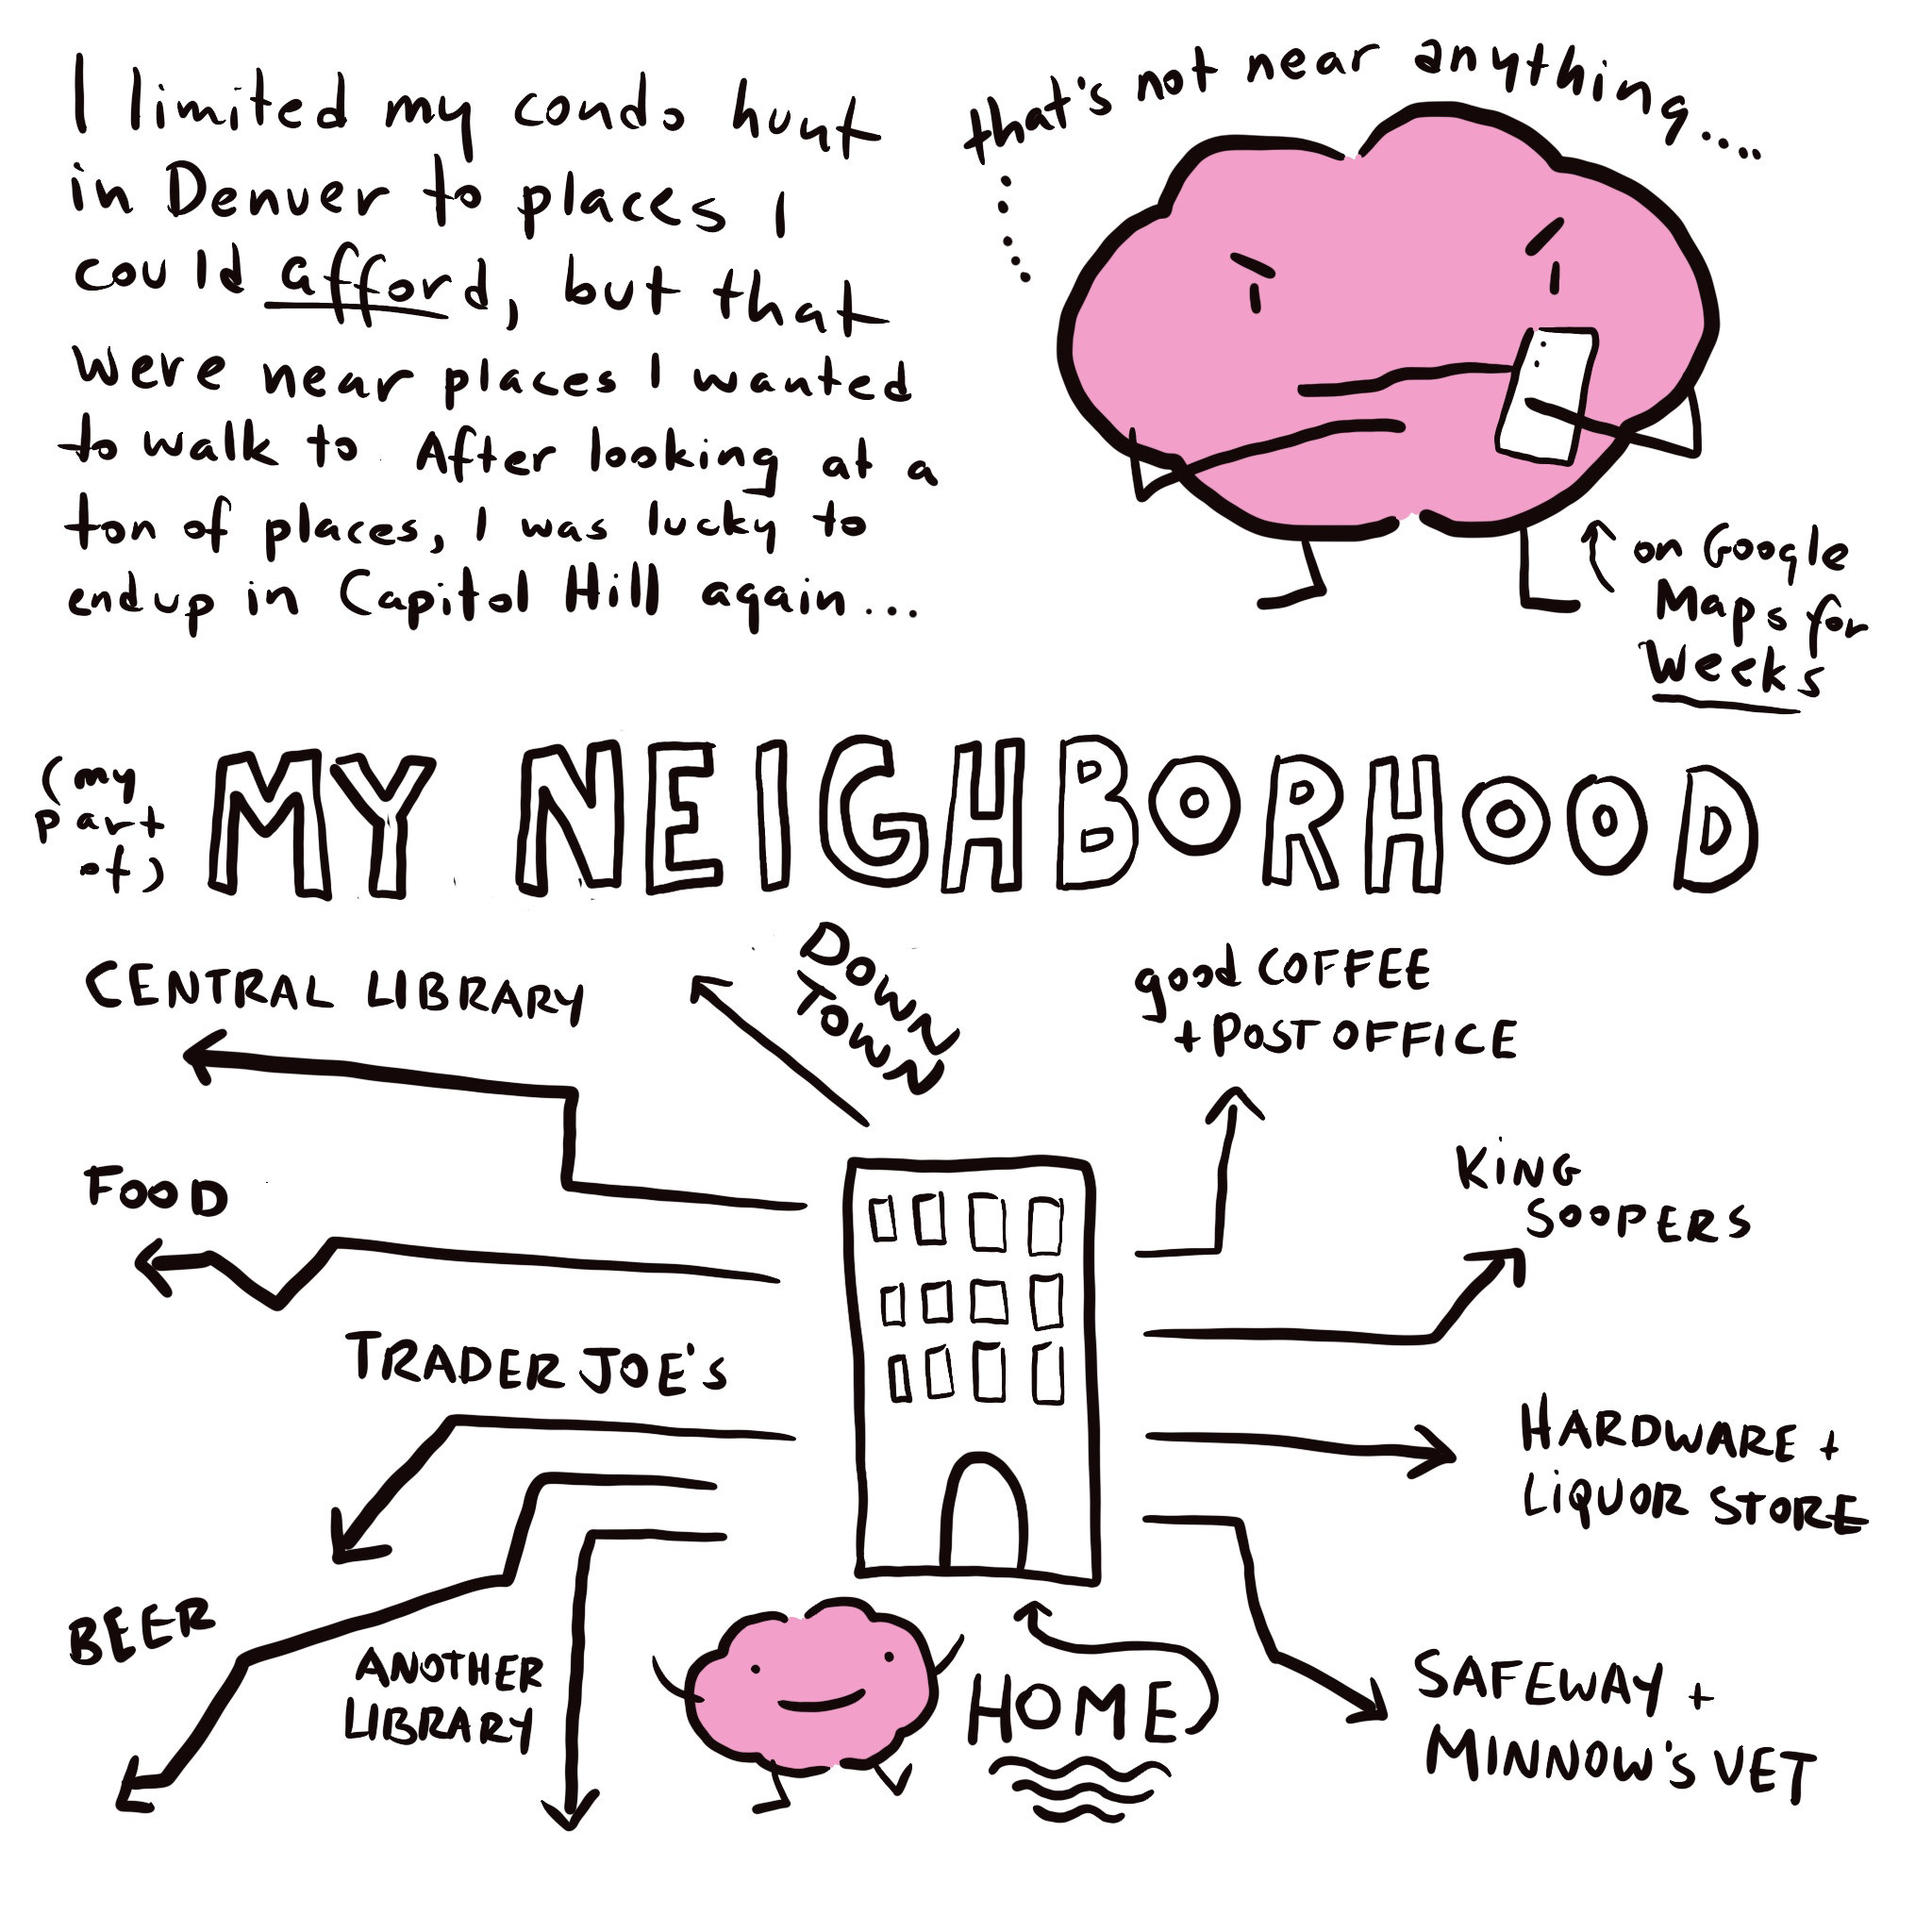 I limited my condo hunt
in Denver to places I
could afford, but that
were near places I wanted
to walk to. After looking at a
ton of places, I was lucky to
end up in Capitol Hill again...
that's not near anything....
on Google
Maps for
Weeks
(my
part
of)
MY NEIGHBORHOOD
CENTRAL LIBRARY
DOWN
TOWN
good COFFEE
+ POST OFFICE
FOOD
KING
SOOPERS
TRADER JOE's
HARDWARE +
LIQUOR STORE
BEER
ANOTHER
LIBRARY
HOME
SAFEWAY +
MINNOW's VET